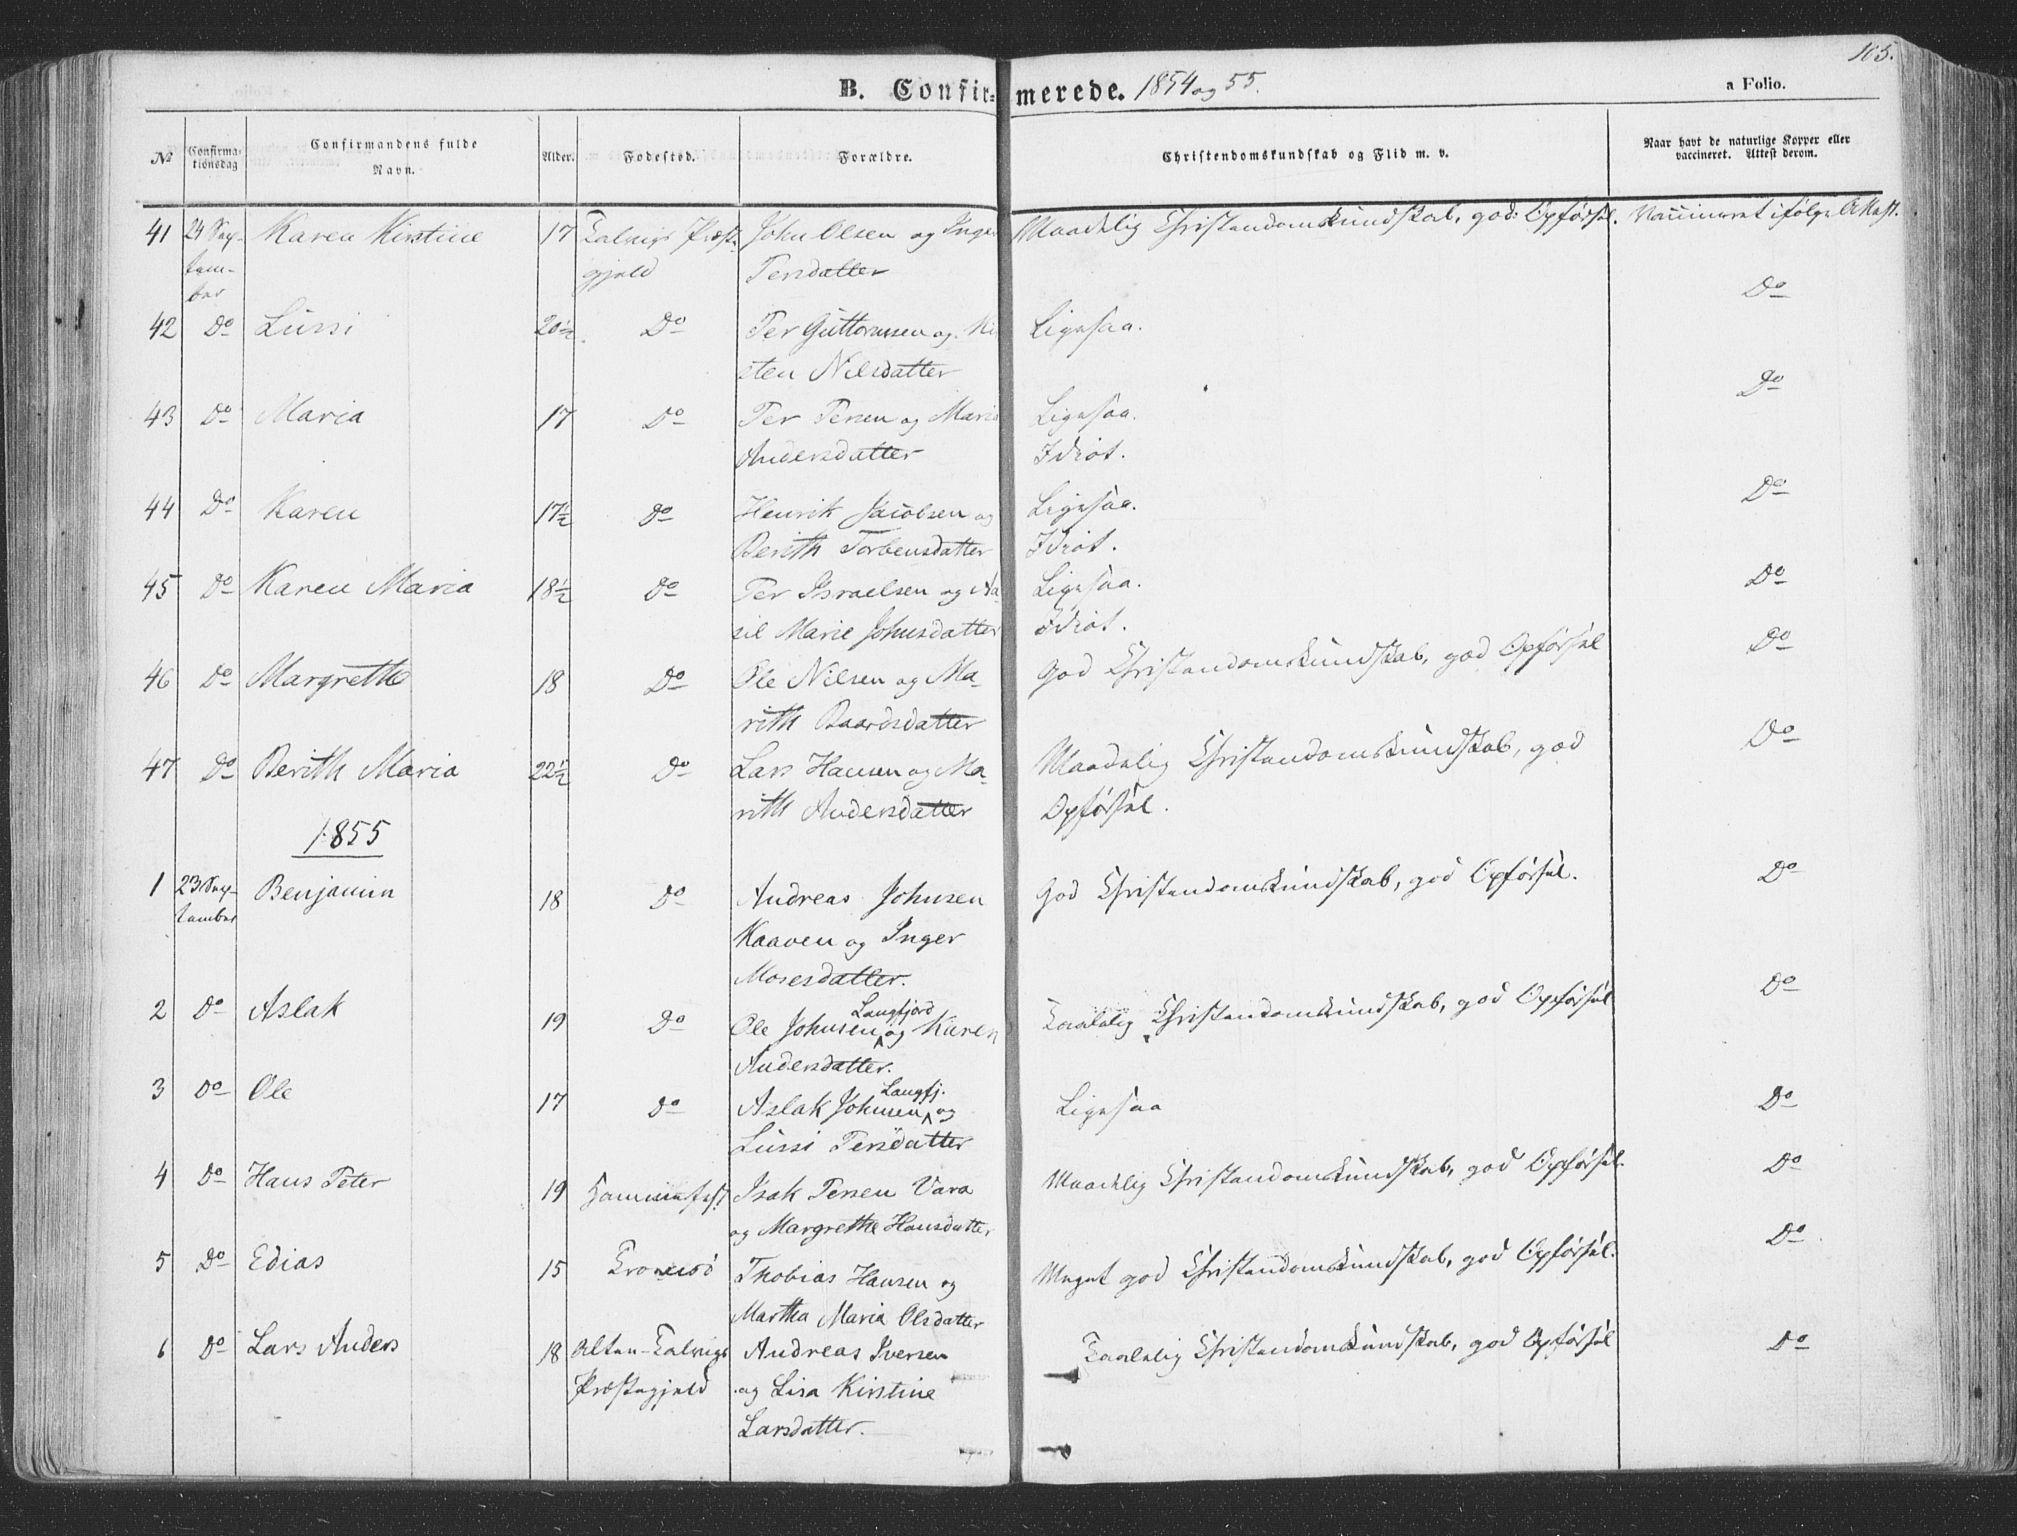 165.
B. Confir=merede. 1854 og 55.
a Folio.
No
Confirma-
tionsdag
Confirmandens fulde
Navn.
Alder.
Fødested.
Forældre.
Christendomskundskab og Flid m. v.
Naar havt de naturlige Kopper eller
vaccineret. Attest derom.
41 24 Sep- Karen Kirstine 17 Talvigs Præst. John Olsen og Inger Maadelig Christendomskundskab, god Opførsel. Vaccineret ifølge Attest.
tem- gjeld Persdatter
ber Do
42 Do Lussi 20½ Do Per Guttormsen og Ki Ligesaa.
sten Nilsdatter
Do
43 Do Maria 17 Do Per Persen og Marie Ligesaa.
Andersdatter Idiot.
Do
44 Do Karen 17½ Do Henrik Jacobsen og Ligesaa.
Berith Torbensdatter Idiot.
Do
45 Do Karen Maria 18½ Do Per Israelsen og Aa- Ligesaa.
sil Marie Johnsdatter Idiot.
Do
46 Do Margrethe 18 Do Ole Nilsen og Ma- God Christendomskundskab, god Opførsel
rith Baardsdatter
Do
47 Do Berith Maria 22½ Do Lars Hansen og Ma- Maadelig Christendomskundskab, god
rith Andersdatter Opførsel.
1855
1 23 Sep- Benjamin 18 Do Andreas Johnsen God Christendomskundskab, god Opførsel. Do
tember Kaaven og Inger
Mosesdatter.
Langfjord
2 Do Aslak 19 Do Ole Johnsen og Karen Taalelig Christendomskundskab, god Opførsel Do
Andersdatter.
Langfj.
3 Do Ole 17 Do Aslak Johnsen og Ligesaa Do
Lussi Persdatter
4 Do Hans Peter 19 Hammerfest Isak Persen Vara Maadelig Christendomskundskab, god Opførsel. Do
og Margrethe Hansdatter
5 Do Edias 15 Tromsö Thobias Hansen og Meget god Christendomskundskab, god Opførsel. Do
Martha Maria Olsdatter
6 Do Lars Anders 18 Alten-Talvigs Andreas Iversen Taalelig Christendomskundskab, god Opførsel Do
Præstegjeld og Lisa Kirstine
Larsdatter.